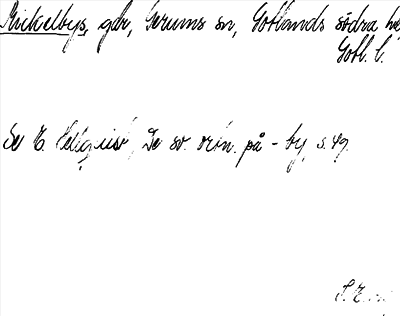 Mickelbys, gdr, Gerums sn, Gotlands södra hd
Gotl. l.
Se E. Hellquist, De sv. ortn. på -by, s. 49.